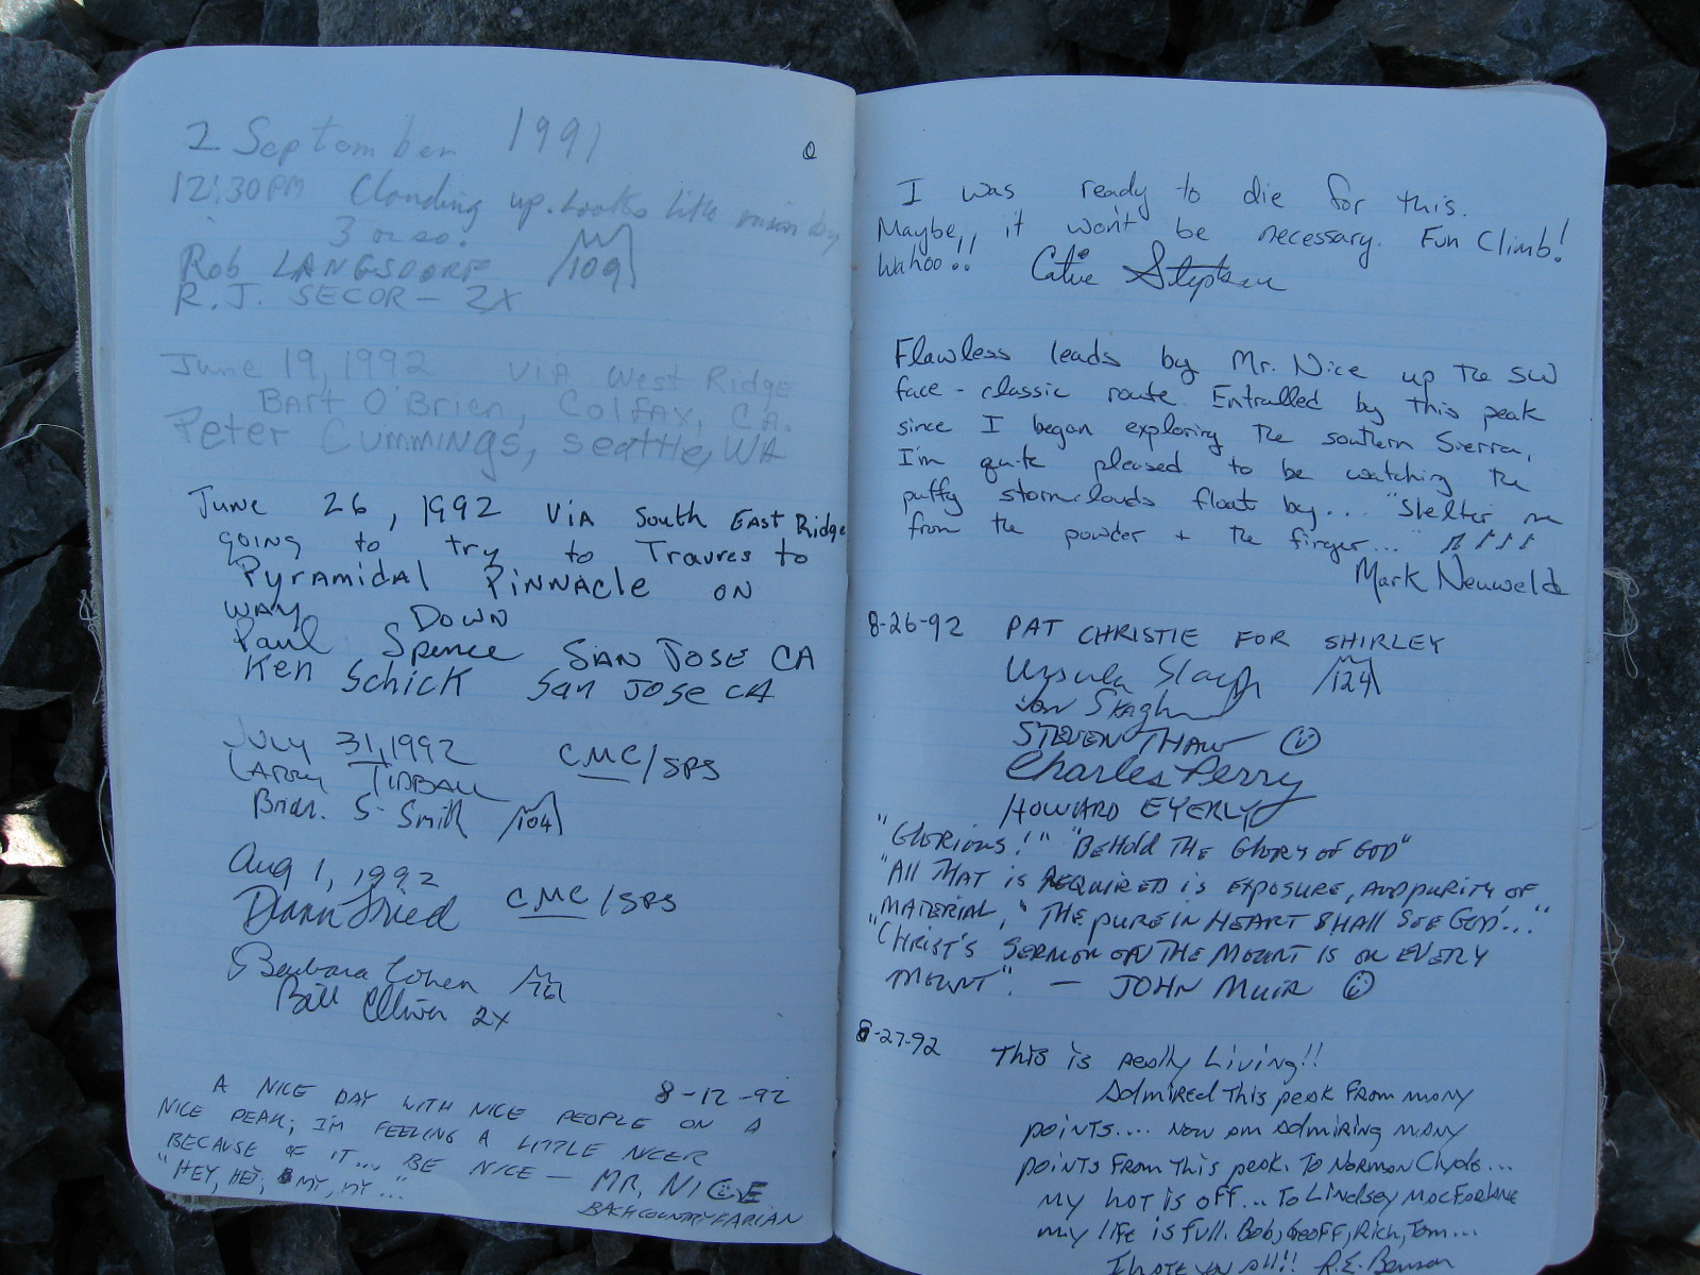 2 September 1991
12:30PM Clouding up. Looks like rain by
3 or so.
Rob LANGSDORF 109
R.J. SECOR - 2X
June 19, 1992 VIA West Ridge
Bart O'Brien, Colfax, CA.
Peter Cummings, Seattle, WA
June 26, 1992 VIA South EAST Ridge
GOING to try to Travres to
Pyramidal PiNNAcle ON
WAY DOWN
Paul Spence SAN JOSE CA
Ken Schick San JOSE CA
July 31, 1992 CMC/SPS
LARRY TIDBALL
Brian S. Smith 104
Aug 1, 1992
CMC/SPS
Barbara Cohen
Bill Oliver 2X
A NICE DAY WITH NICE PEOPLE ON A 8-12-92
NICE PEAK; I'M FEELING A LITTLE NICER
BECAUSE OF IT... BE NICE — MR. NICE
"HEY, HEY, MY, MY..."
BACKCOUNTRYFARIAN
I was ready to die for this.
Maybe,, it won't be necessary. Fun Climb!
Wahoo!!
Flawless leads by Mr. Nice up the SW
face - classic route. Entralled by this peak
since I began exploring the southern Sierra,
I'm quite pleased to be watching the
puffy stormclouds float by... "Shelter me
from the powder + the finger..."
Mark Neuweld
8-26-92 PAT CHRISTIE FOR SHIRLEY
Ursula 124
STEVEN THAW
Charles Perry
HOWARD EYERLY
"GLORIOUS!" "BEHOLD THE GLORY OF GOD"
"All THAT is REQUIRED is EXPOSURE, AND PURITY OF
MATERIAL," "THE PURE IN HEART SHALL SEE GOD'..."
"CHRIST'S SERMON ON THE MOUNT IS ON EVERY
MOUNT". — JOHN MUIR
8-27-92 This is really Living!!
Admired This peak From many
points.... Now am Admiring many
points From This peak. To Norman Clyde...
my hat is off... To Lindsey MacFarlane
my life is full. Bob, Geoff, Rich, Tom...
I hate you all!! R.E. Benson